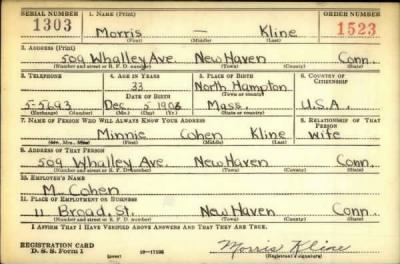 SERIAL NUMBER 1. NAME (Print) ORDER NUMBER
1303 Morris — Kline 1523
(First) (Middle) (Last)
2. ADDRESS (Print)
509 Whalley Ave. New Haven Conn.
(Number and street or R. F. D. number) (Town) (County) (State)
3. TELEPHONE 4. AGE IN YEARS 5. PLACE OF BIRTH 6. COUNTRY OF CITIZENSHIP
33 North Hampton
DATE OF BIRTH (Town or county)
5-5693 Dec 5 1906 Mass. U.S.A.
(Exchange) (Number) (Mo.) (Day) (Yr.) (State or country)
7. NAME OF PERSON WHO WILL ALWAYS KNOW YOUR ADDRESS 8. RELATIONSHIP OF THAT PERSON
Minnie Cohen Kline Wife
(Mr., Mrs., Miss) (First) (Middle) (Last)
9. ADDRESS OF THAT PERSON
509 Whalley Ave. New Haven Conn.
(Number and street or R. F. D. number) (Town) (County) (State)
10. EMPLOYER'S NAME
M. Cohen
11. PLACE OF EMPLOYMENT OR BUSINESS
11 Broad. St. New Haven Conn.
(Number and street or R. F. D. number) (Town) (County) (State)
I AFFIRM THAT I HAVE VERIFIED ABOVE ANSWERS AND THAT THEY ARE TRUE.
REGISTRATION CARD
D. S. S. Form 1 Morris Kline
(Registrant's signature)